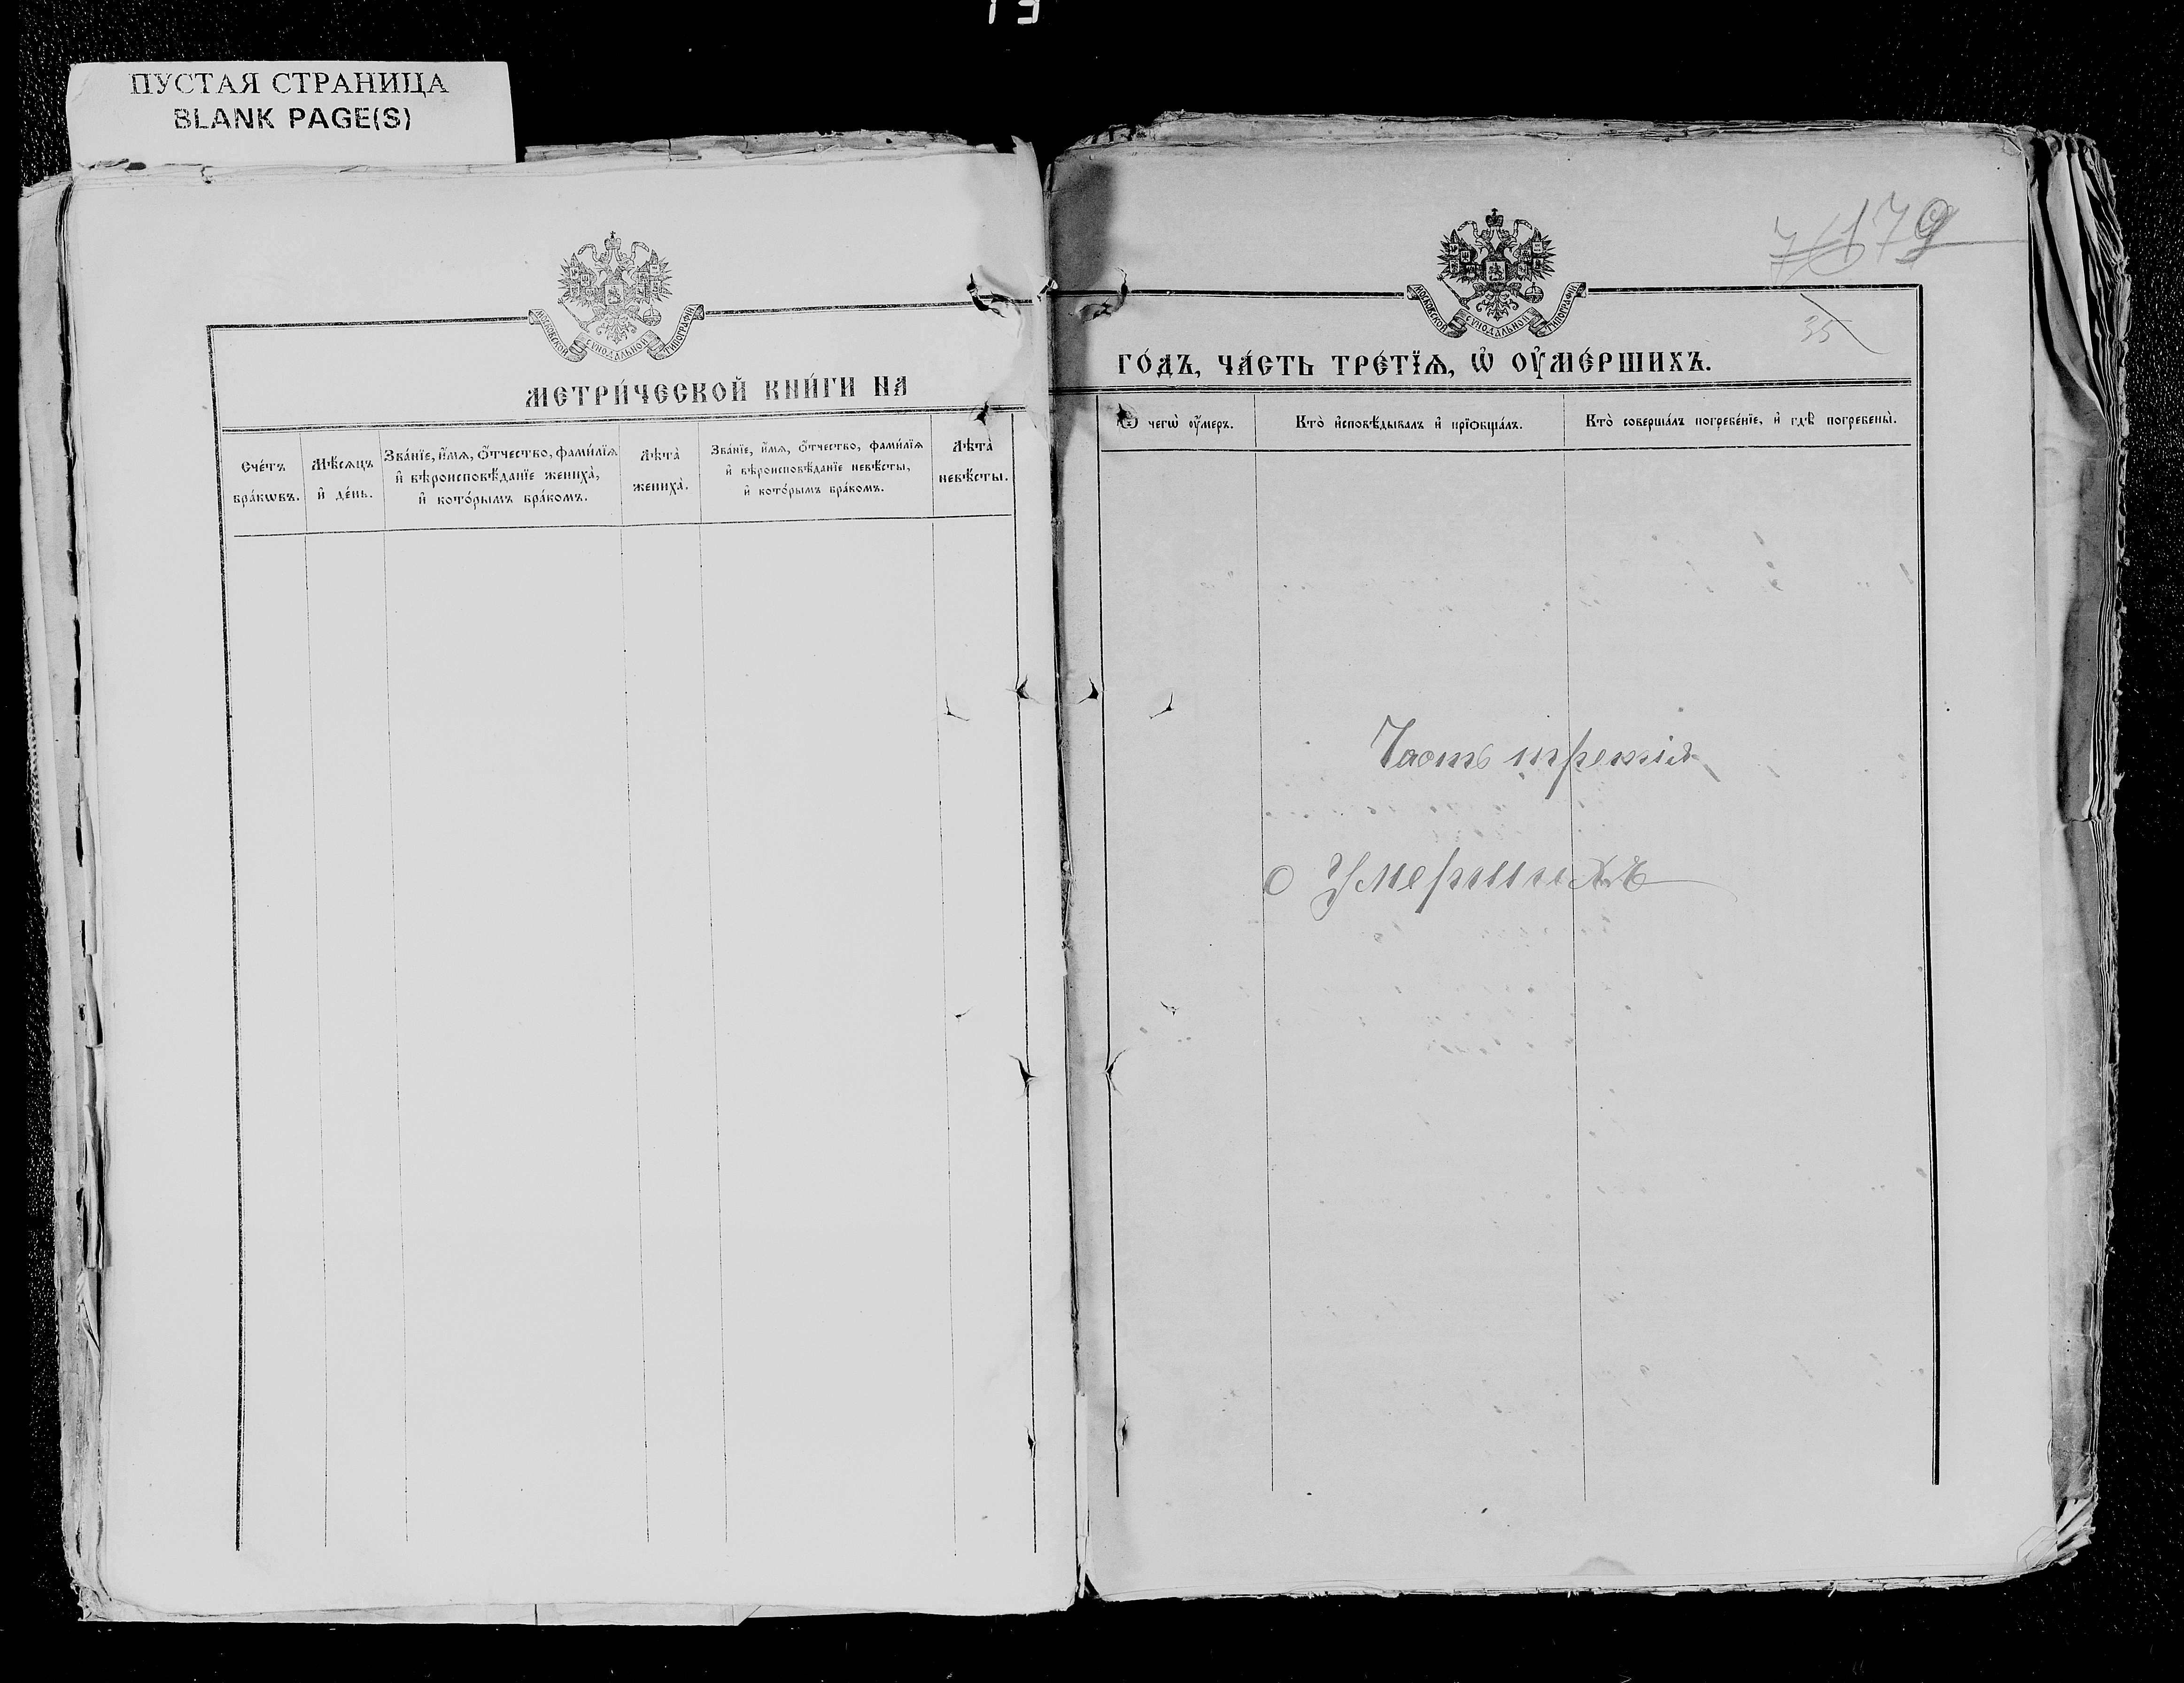 ПУСТАЯ СТРАНИЦА
BLANK PAGE(S)
МОСКОВСКОЙ СѴНОДАЛЬНОЙ ТИПОГРАФІИ
МЕТРИ́ЧЕСКОЙ КНИ́ГИ НА
Сче́тъ бра́кѡвъ.
Мѣ́сѧцъ и҆ де́нь.
Зва́нїе, и҆́мѧ, ѻ҆́тчество, фами́лїѧ и҆ вѣроисповѣ́данїе жениха̀, и҆ кото́рымъ бра́комъ.
Лѣта̀ жениха̀.
Зва́нїе, и҆́мѧ, ѻ҆́тчество, фами́лїѧ и҆ вѣроисповѣ́данїе невѣ́сты, и҆ кото́рымъ бра́комъ.
Лѣта̀ невѣ́сты.
179
35
МОСКОВСКОЙ СѴНОДАЛЬНОЙ ТИПОГРАФІИ
ГО́ДЪ, ЧА́СТЬ ТРЕ́ТЇѦ, Ѡ҆ ОУ҆МЕ́РШИХЪ.
Ѿ чегѡ̀ оу҆́меръ.
Кто̀ и҆сповѣ́дывалъ и҆ прїѻбща́лъ.
Кто̀ соверша́лъ погребе́нїе, и҆ гдѣ̀ погребены̀.
Часть третія
о Умершихъ